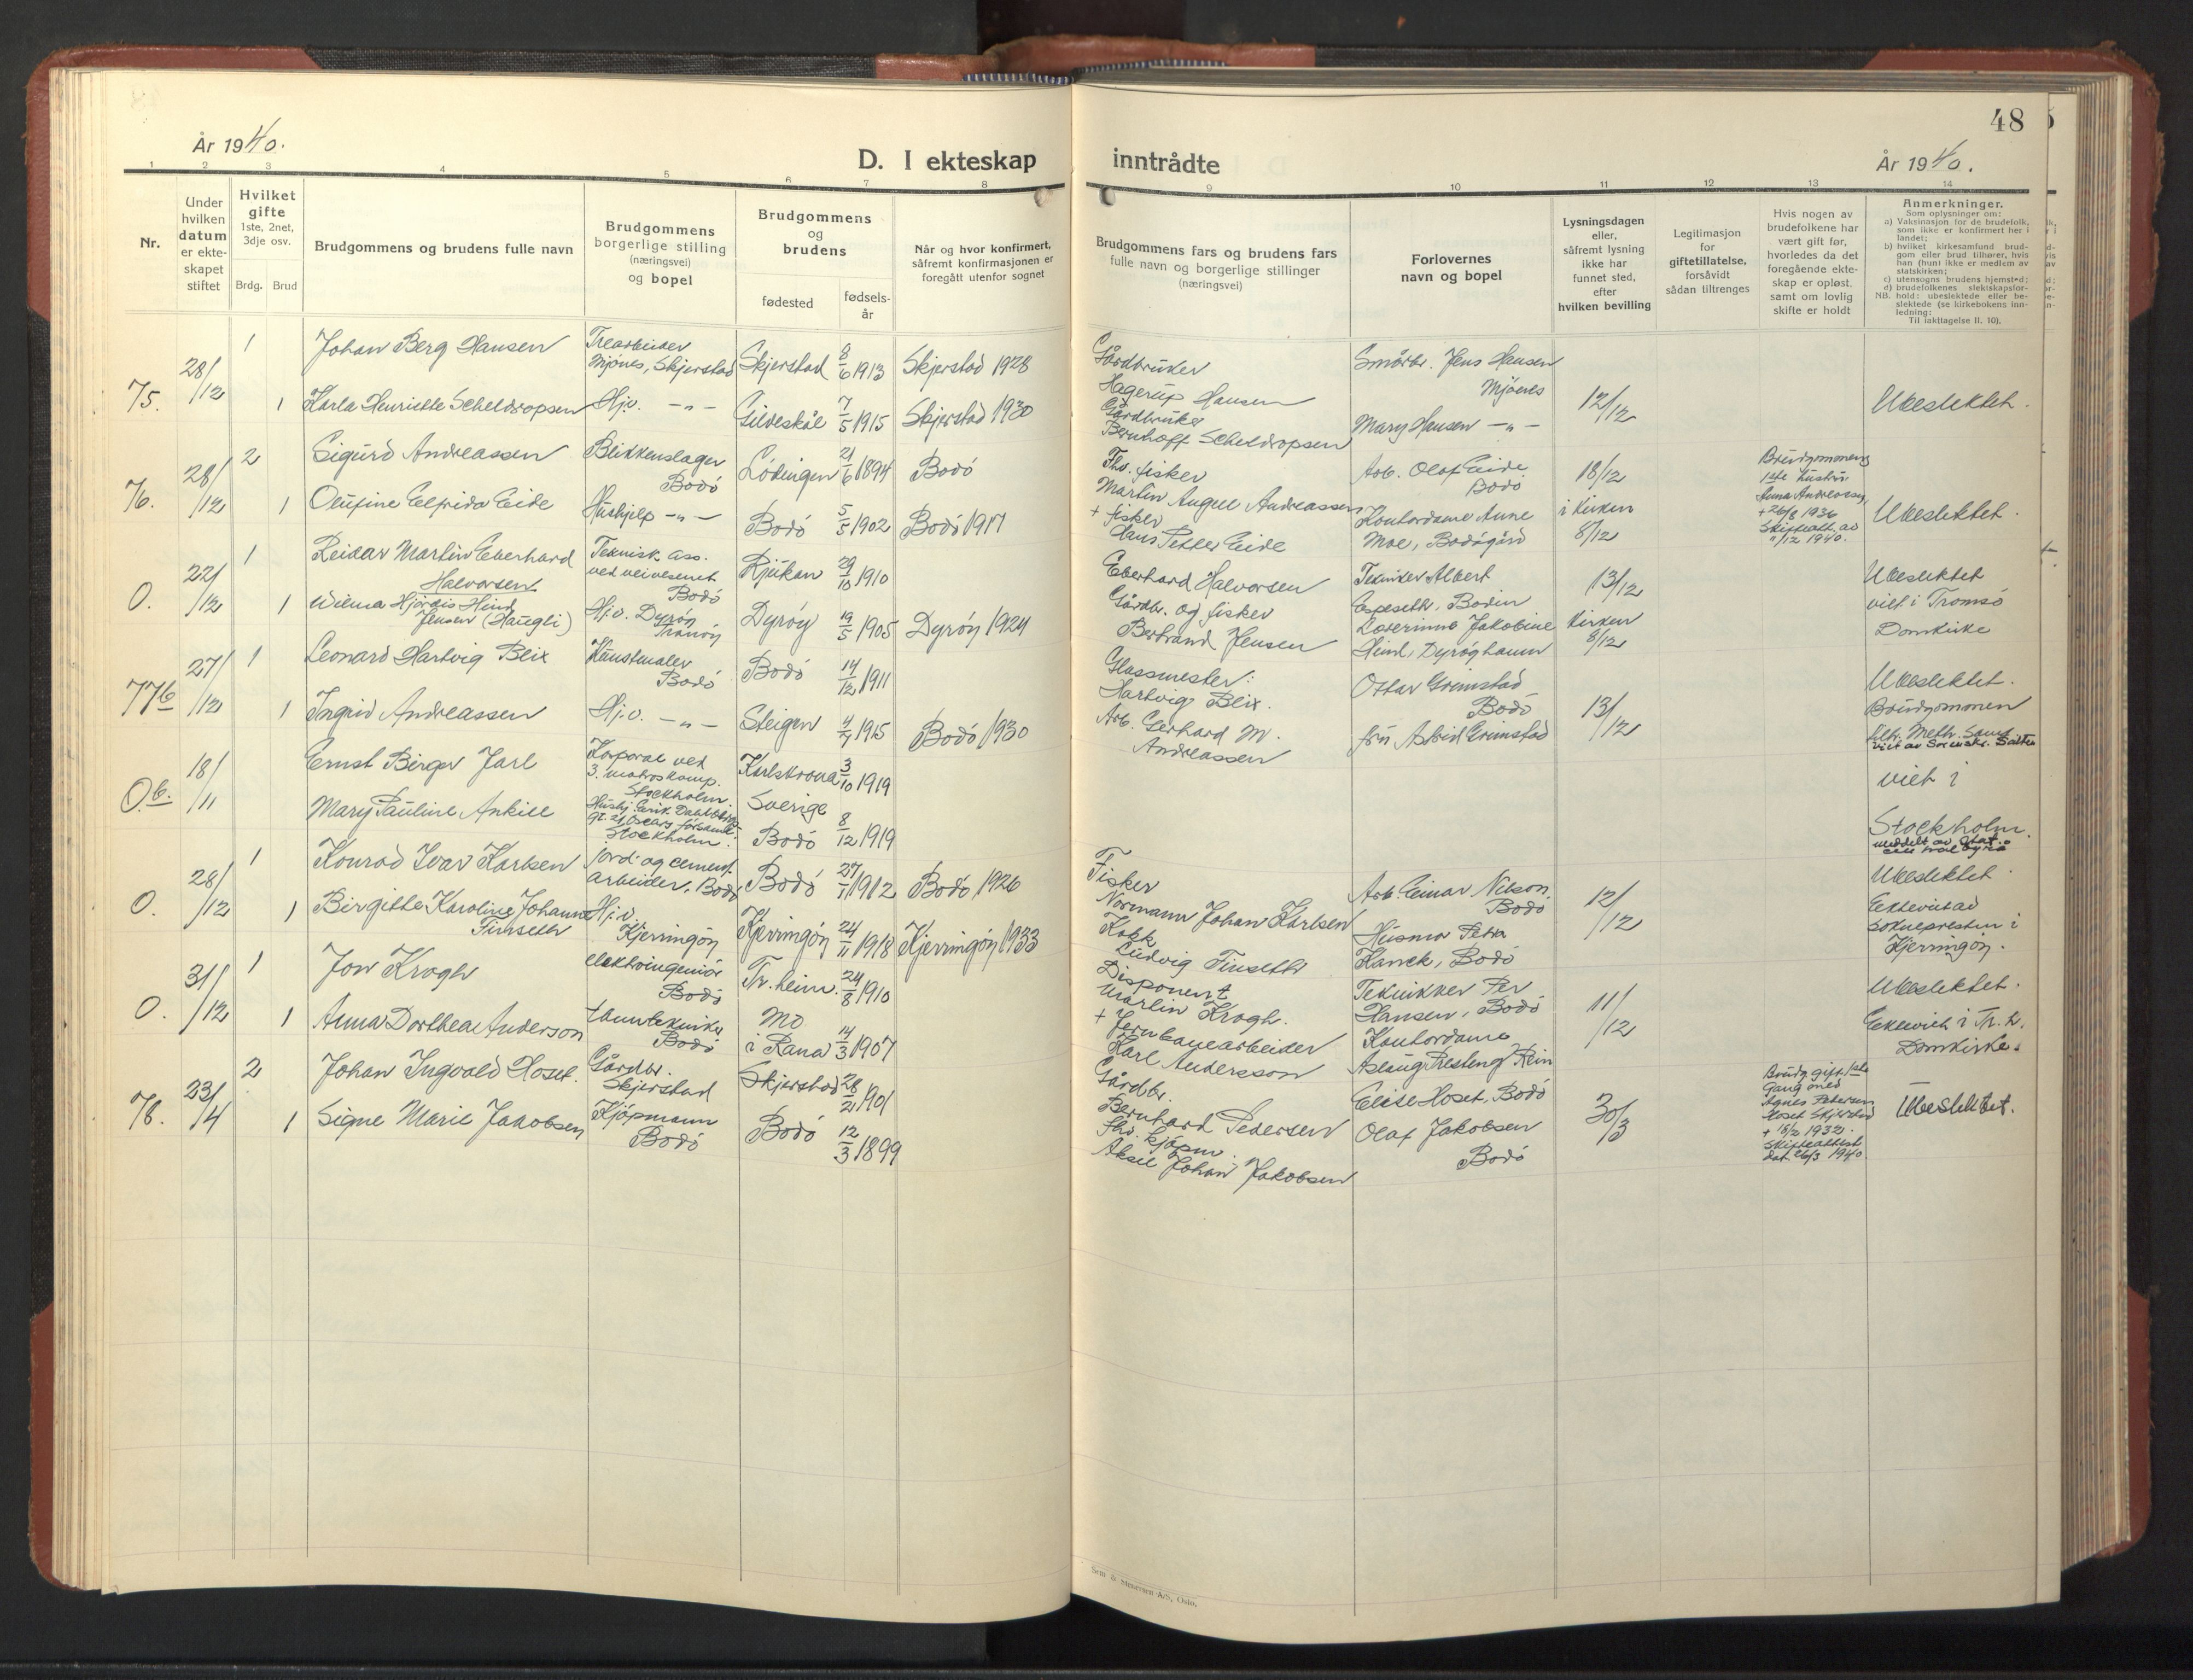 48
År 1940.
D. I ekteskap
inntrådte
År 1940.
1 2 3 4 5 6 7 8 9 10 11 12 13 14
Nr.
Under
hvilken
datum
er ekte-
skapet
stiftet
Hvilket
gifte
1ste, 2net,
3dje osv.
Brdg. Brud
Brudgommens og brudens fulle navn
Brudgommens
borgerlige stilling
(næringsvei)
og bopel
Brudgommens
og
brudens
fødested
fødsels-
år
Når og hvor konfirmert,
såfremt konfirmasjonen er
foregått utenfor sognet
Brudgommens fars og brudens fars
fulle navn og borgerlige stillinger
(næringsvei)
Forlovernes
navn og bopel
Lysningsdagen
eller,
såfremt lysning
ikke har
funnet sted,
efter
hvilken bevilling
Legitimasjon
for
giftetillatelse,
forsåvidt
sådan tiltrenges
Hvis nogen av
brudefolkene har
vært gift før,
hvorledes da det
foregående ekte-
skap er opløst,
samt om lovlig
skifte er holdt
Anmerkninger.
Som oplysninger om:
a) Vaksinasjon for de brudefolk,
som ikke er konfirmert her i
landet;
b) hvilket kirkesamfund brud-
gom eller brud tilhører, hvis
han (hun) ikke er medlem av
statskirken;
c) utensogns brudens hjemsted;
d) brudefolkenes slektskapsfor-
NB. hold: ubeslektede eller be-
slektede (se kirkebokens inn-
ledning:
Til iakttagelse II. 10).
75.
28/12
1
Johan Berg Hansen
Trearbeider
Mjönes, Skjerstad
Skjerstad 8/6 1913
Skjerstad 1928
Gårdbruker
Hagerup Hansen
Småbr. Jens Hansen
Mjönes
12/12
Ubeslektet.
1
Karla Henriette Scheldropsen
Hj.v. -"-
Gildeskål 7/5 1915
Skjerstad 1930
Gårdbruker
Bernhoff Scheldropsen
Mary Hansen -"-
76.
28/12
2
Sigurd Andreassen
Blikkenslager
Bodö
Lödingen 21/6 1894
Bodö
Fhv. fisker
Martin August Andreassen
Arb. Olaf Eide
Bodö
18/12
i Kirken
8/12
Brudgommens
1ste hustru
Anna Andreassen
+ 26/8 1936
Skifteatt. av
11/12 1940.
Ubeslektet.
1
Olufine Elfrida Eide
Hushjelp -"-
Bodö 5/5 1902
Bodö 1917
+ fisker
Hans Petter Eide
Kontordame Anne
Moe, Bodögård
0.
22/12
1
Reidar Martin Eberhard
Halvorsen
Teknisk ass.
ved veivesenet
Bodö
Rjukan 29/10 1910
Eberhard Halvorsen
Tekniker Albert
Espeseth, Bodin
13/12
Kirken
8/12
Ubeslektet
viet i Tromsö
Domkirke
1
Wilma Hjördis Hind
Jensen (Haugli)
Hj.v. Dyröy
Tranöy
Dyröy 19/5 1905
Dyröy 1924
Gårdbr. og fisker
Bertrand Jensen
Lærerinne Jakobine
Hind, Dyröyhamn
77b
27/12
1
Leonard Hartvig Blix
Kunstmaler
Bodö
Bodö 14/12 1911
Glassmester:
Hartvig Blix.
Ottar Grimstad
Bodö
13/12
Ubeslektet.
Brudgommen
tilh. Meth. Samf.
viet av Sorenskr. Salten
1
Ingrid Andreassen
Hj.v. -"-
Steigen 4/7 1915
Bodö 1930
Arb. Gerhard M.
Andreassen
fru Astrid Grimstad
0.b.
18/11
Ernst Birger Jarl
Korporal ved
3. matroskomp.
Stockholm.
Karlskrona 3/10 1919
Sverige
viet i
Stockholm.
Mary Pauline Ankile
Stockholm.
Bodö 8/12 1919
0.
28/12
1
Konrad Ivar Karlsen
Jord- og cement-
arbeider, Bodö
Bodö 27/11 1912
Bodö 1926
Fisker
Normann Johan Karlsen
Arb. Einar Nilsen
Bodö
12/12
Ubeslektet.
Ekteviet av
sokneprestin i
Kjerringöy.
1
Birgitte Karoline Johanne
Finseth
Hj.v.
Kjerringöy
Kjerringöy 24/11 1918
Kjerringöy 1933
Kokk
Ludvig Finseth
Husmor Petra
Hanek, Bodö
0.
31/12
1
Jon Krogh
elektroingeniör
Bodö
Tr.heim. 24/8 1910
Disponent
Martin Krogh.
Teknikker Per
Hansen, Bodö
11/12
Ubeslektet.
Ekteviet i Tr.h.
Domkirke.
1
Anna Dorthea Anderson
tanntekniker
Bodö
Mo
i Rana 14/3 1907
+ Jernbanearbeider
Karl Andersson
Kontordame
Aslaug Presteng Rein
78.
23/4
2
Johan Ingvald Hoset.
Gårdbr.
Skjerstad
Skjerstad 28/2 1901
Gårdbr.
Bernhard Pedersen
Elise Hoset, Bodö
30/3
Brudg. gift 1ste
Gang med
Agnes Petersen
Hoset Skjerstad
+ 15/2 1932.
Skifteattest
dat 26/3 1940
Ubeslektet.
1
Signe Marie Jakobsen
Kjöpmann
Bodö
Bodö 12/3 1899
Fhv. kjöpm.
Aksel Johan Jakobsen
Olaf Jakobsen
Bodö
Sem & Stenersen A/S, Oslo.